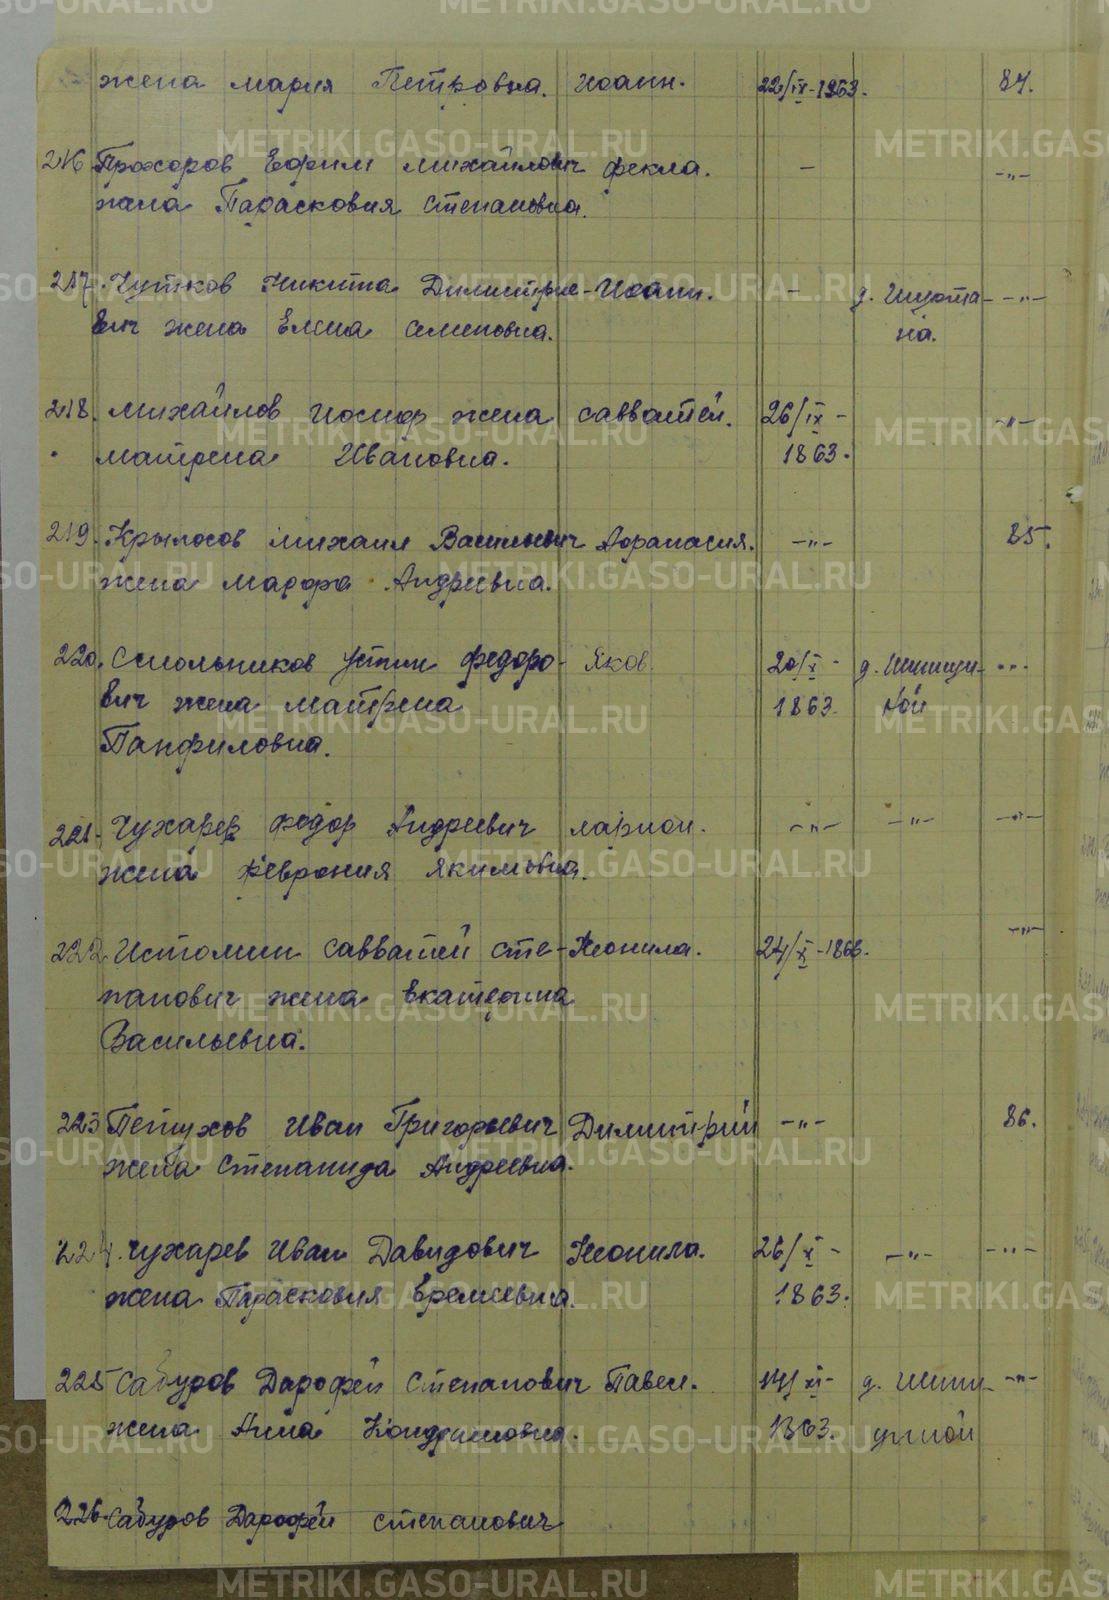 METRIKI.GASO-URAL.RU METRIKI.GASO-URAL.RU
жена Мария Петровна. Иоанн. 22/IX-1963. 84.
216 Прохоров Ефрим Михайлович Фекла. - -"-
жена Парасковия Степановна.
217. Чутков Никита Дмитрие- Иоанн. - д. Шуфта- -"-
вич жена Елена Семеновна. на.
218. Михайлов Иосиф жена Савватей. 26/IX- -"-
Матрена Ивановна. 1863.
219. Крылосов Михаил Васильевич Афанасия. -"- 85.
жена Марфа Андреевна.
220. Смольников Устин Федоро- Яков. 20/X- -"-
вич жена Матрена 1863.
Панфиловна.
221. Чухарев Федор Андреевич Ларион. -"- -"- -"-
жена Феврония Якимовна.
222 Истомин Савватей Сте- Неонила. 24/X-1863. -"-
панович жена Екатерина
Васильевна.
223 Петухов Иван Григорьевич Димитрий -"- 86.
жена Степанида Андреевна.
224. Чухарев Иван Давидович Неонила. 26/X- -"- -"-
жена Парасковия Еремеевна. 1863.
225 Сабуров Дарофей Степанович Павел. д. -"-
жена Анна Кондратовна. 1863.
226. Сабуров Дарофей Степанович